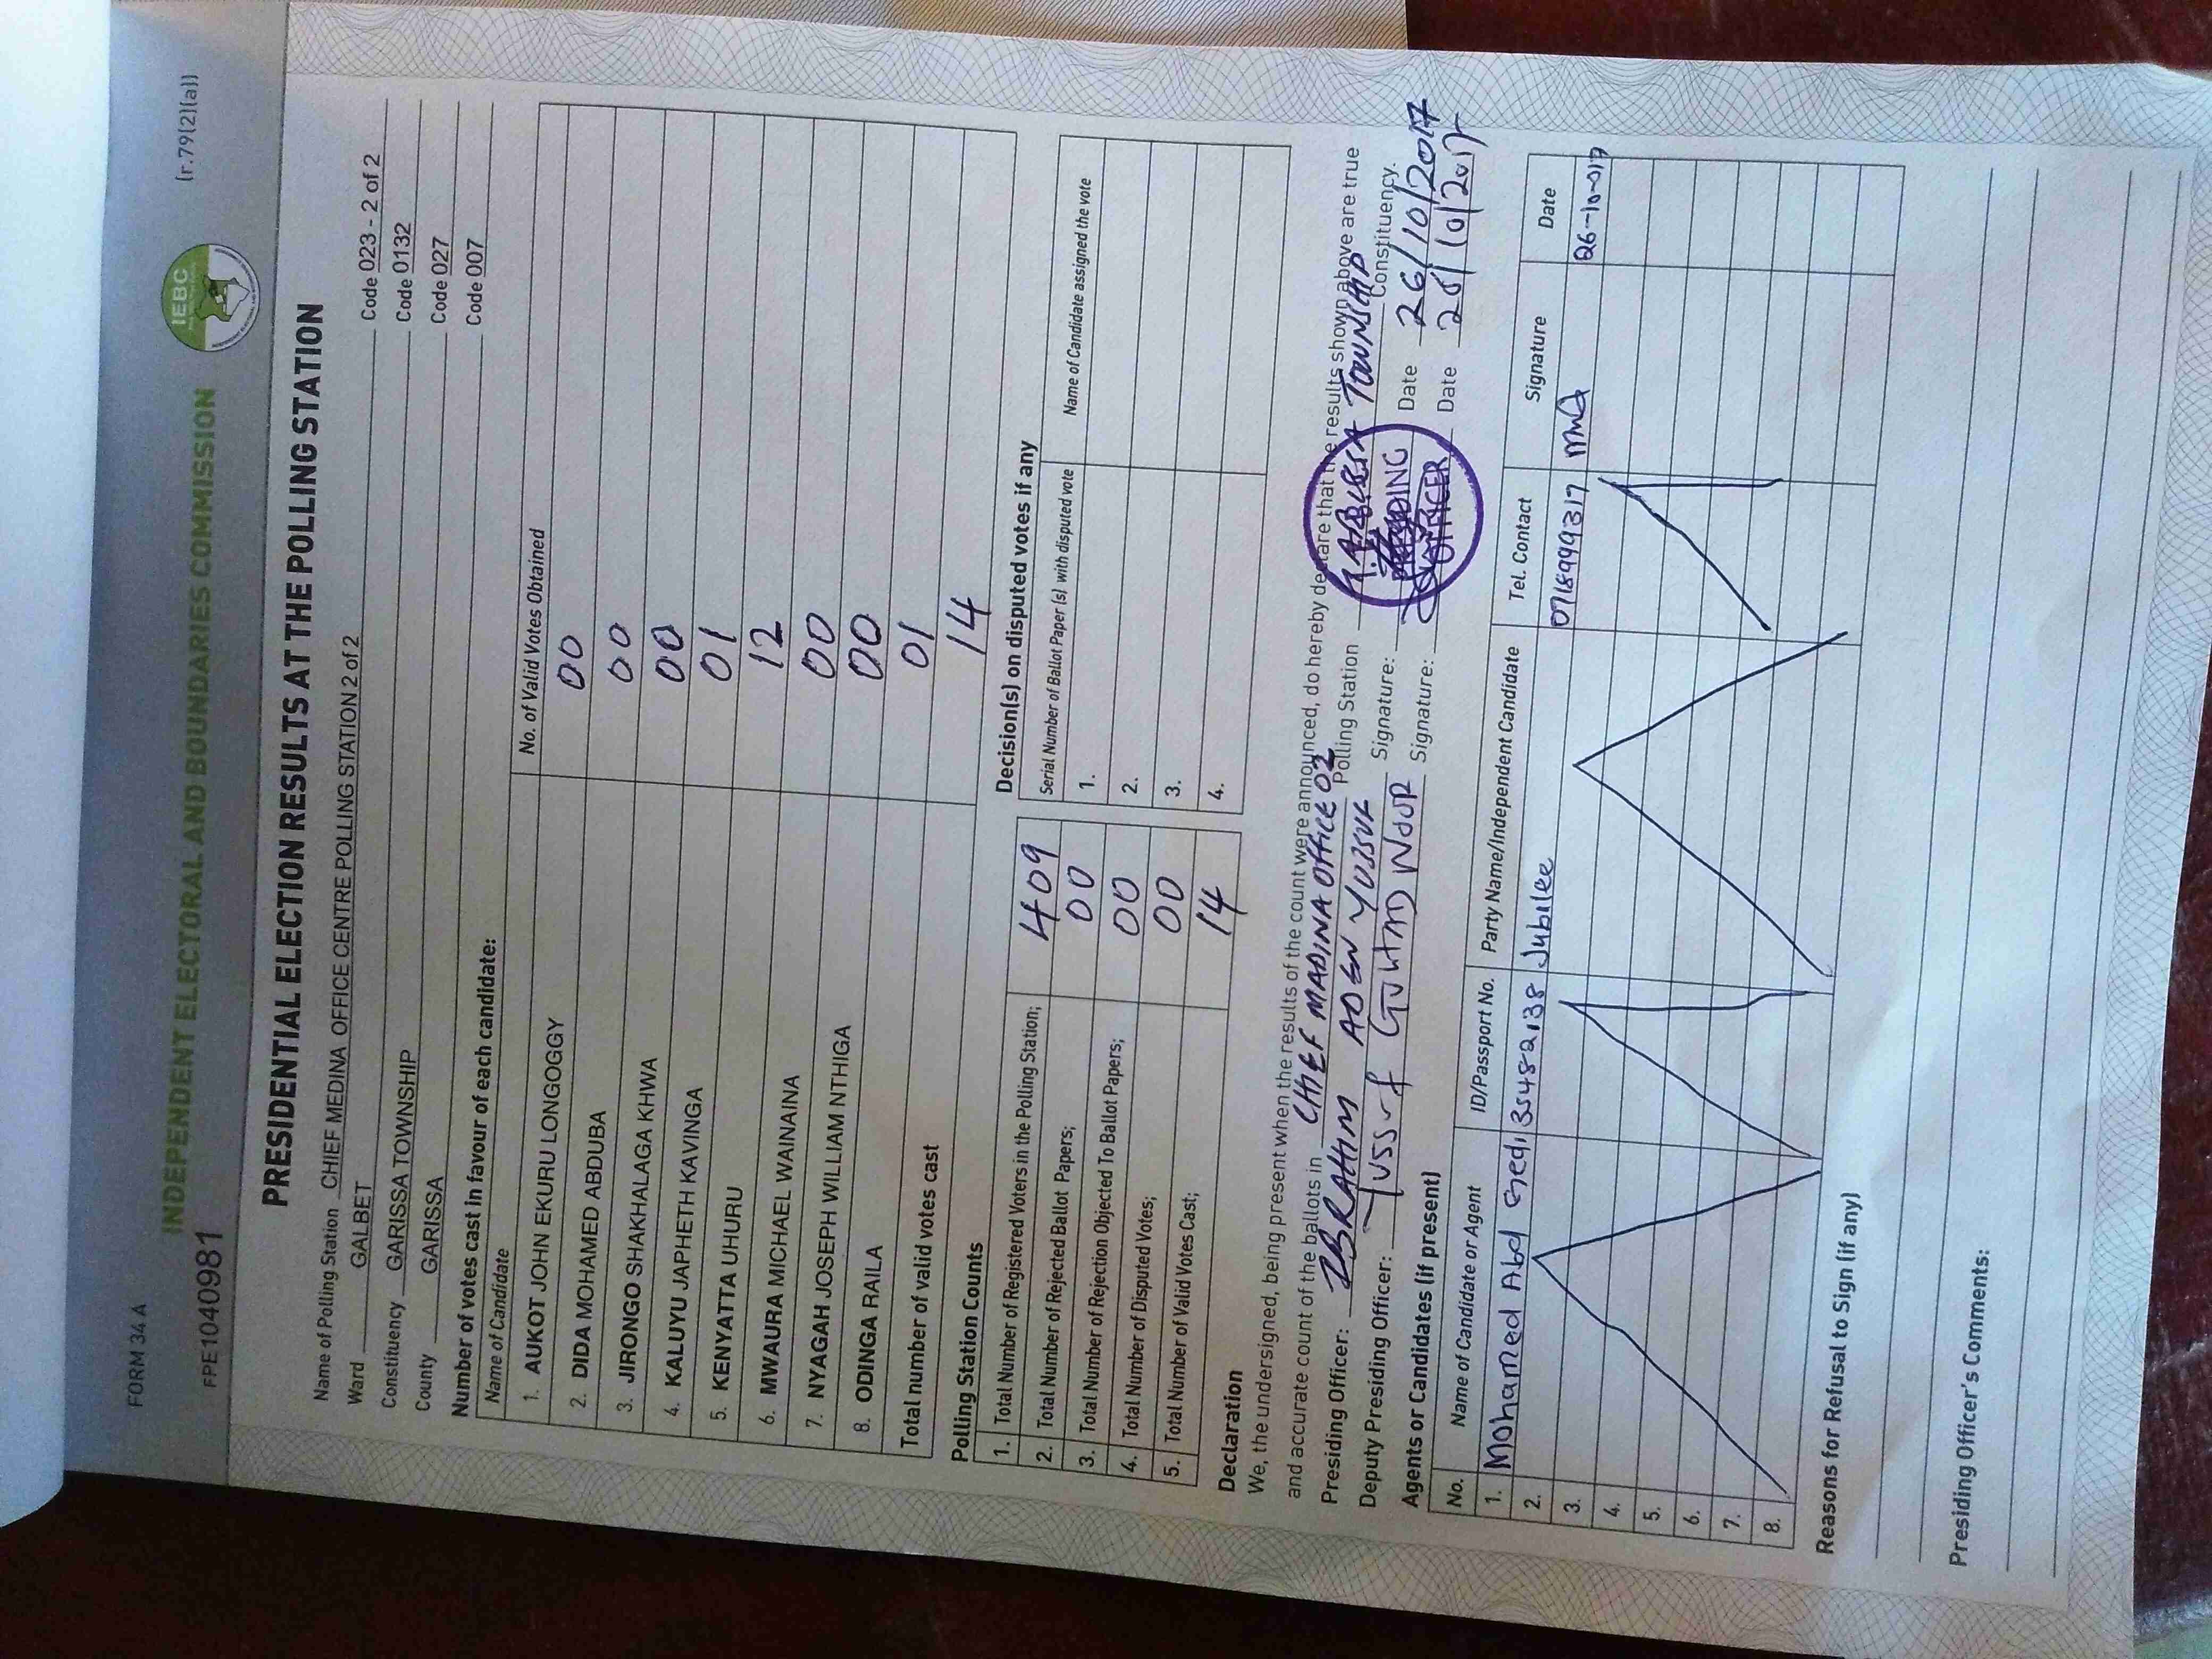 FORM 34 A
(r.79(2)(a))
FPE1040981
INDEPENDENT ELECTORAL AND BOUNDARIES COMMISSION
IEBC
PRESIDENTIAL ELECTION RESULTS AT THE POLLING STATION
Name of Polling Station CHIEF MEDINA OFFICE CENTRE POLLING STATION 2 of 2 Code 023 - 2 of 2
Ward GALBET Code 0132
Constituency GARISSA TOWNSHIP Code 027
County GARISSA Code 007
Number of votes cast in favour of each candidate:
Name of Candidate No. of Valid Votes Obtained
1. AUKOT JOHN EKURU LONGOGGY 00
2. DIDA MOHAMED ABDUBA 00
3. JIRONGO SHAKHALAGA KHWA 00
4. KALUYU JAPHETH KAVINGA 01
5. KENYATTA UHURU 12
6. MWAURA MICHAEL WAINAINA 00
7. NYAGAH JOSEPH WILLIAM NTHIGA 00
8. ODINGA RAILA 01
Total number of valid votes cast 14
Polling Station Counts
1. Total Number of Registered Voters in the Polling Station; 409
2. Total Number of Rejected Ballot Papers; 00
3. Total Number of Rejection Objected To Ballot Papers; 00
4. Total Number of Disputed Votes; 00
5. Total Number of Valid Votes Cast; 14
Decision(s) on disputed votes if any
Serial Number of Ballot Paper (s) with disputed vote Name of Candidate assigned the vote
1.
2.
3.
4.
Declaration
We, the undersigned, being present when the results of the count were announced, do hereby declare that the results shown above are true
and accurate count of the ballots in CHIEF MADINA OFFICE 02 Polling Station TOWNSHIP Constituency.
Presiding Officer: IBRAHIM ADEN YUSSUF Signature: Date 26/10/2017
Deputy Presiding Officer: Yussuf Date
Signature:
OFFICER
Agents or Candidates (if present)
No. Name of Candidate or Agent ID/Passport No. Party Name/Independent Candidate Tel. Contact Signature Date
1. Mohamed Abdi Gedi 35482138 Jubilee 0718999317 26-10-017
2.
3.
4.
5.
6.
7.
8.
Reasons for Refusal to Sign (if any)
Presiding Officer's Comments: